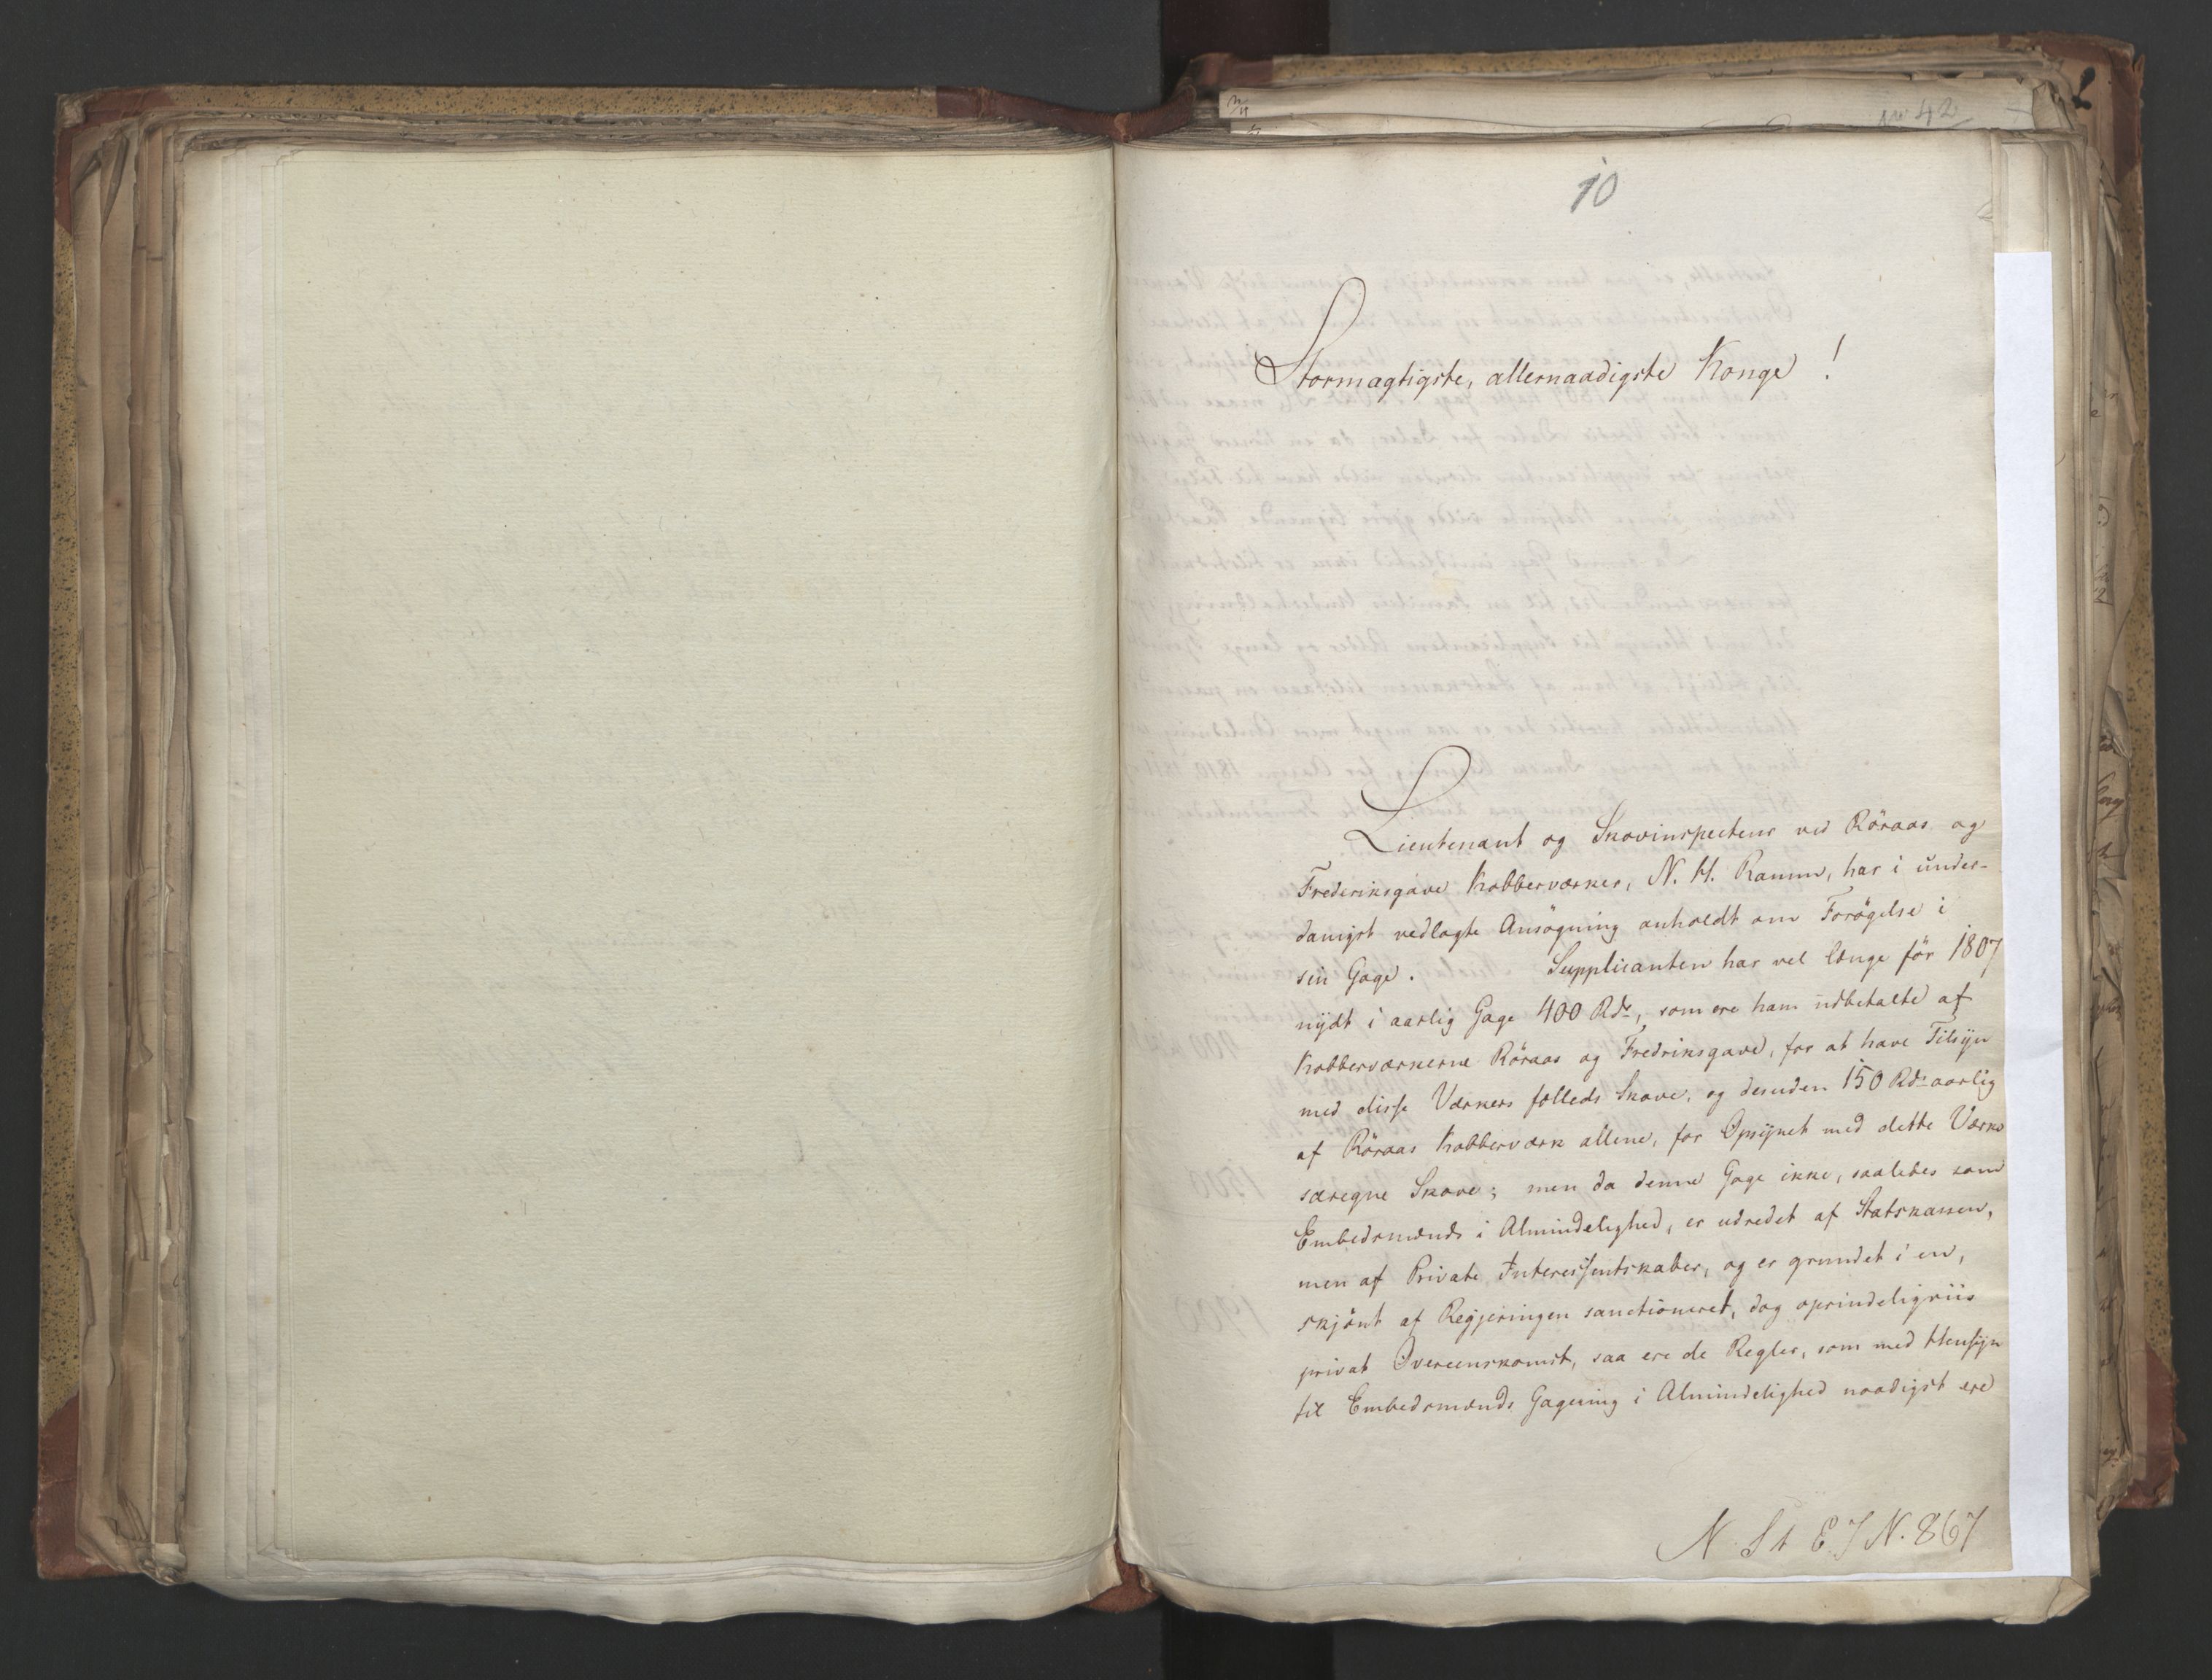 No 42
10
Stormagtigste, allernaadigste Konge!
Lieutenant og Skovinspecteur ved Röraas og
Frederiksgave Kobberværker, N. H. Ramm, har i under-
danigst vedlagte Ansögning anholdt om Forögelse i
sin Gage. Supplicanten har vel længe för 1807
nÿdt i aarlig Gage 400 Rdr, som ere ham udbetalte af
Kobberværkerne Röraas og Fredriksgave, for at have Tilsÿn
med disse Værkers fælleds Skove, og desuden 150 Rdr aarlig
af Röraas Kobberværk allene, for Opsÿnet med dette Værks
særegne Skove; men da denne Gage ikke, saaledes som
Embedsmænds i Almindelighed, er udredet af Statskassen,
men af Private Interessentskaber, og er grundet i en,
skjönt af Regjeringen sanctioneret, dog oprindeligviis
privat Overeenskomst, saa ere de Regler, som med Hensÿn
til Embedsmænds Gagering i Almindelighed naadigst ere
N. St E. J N. 867